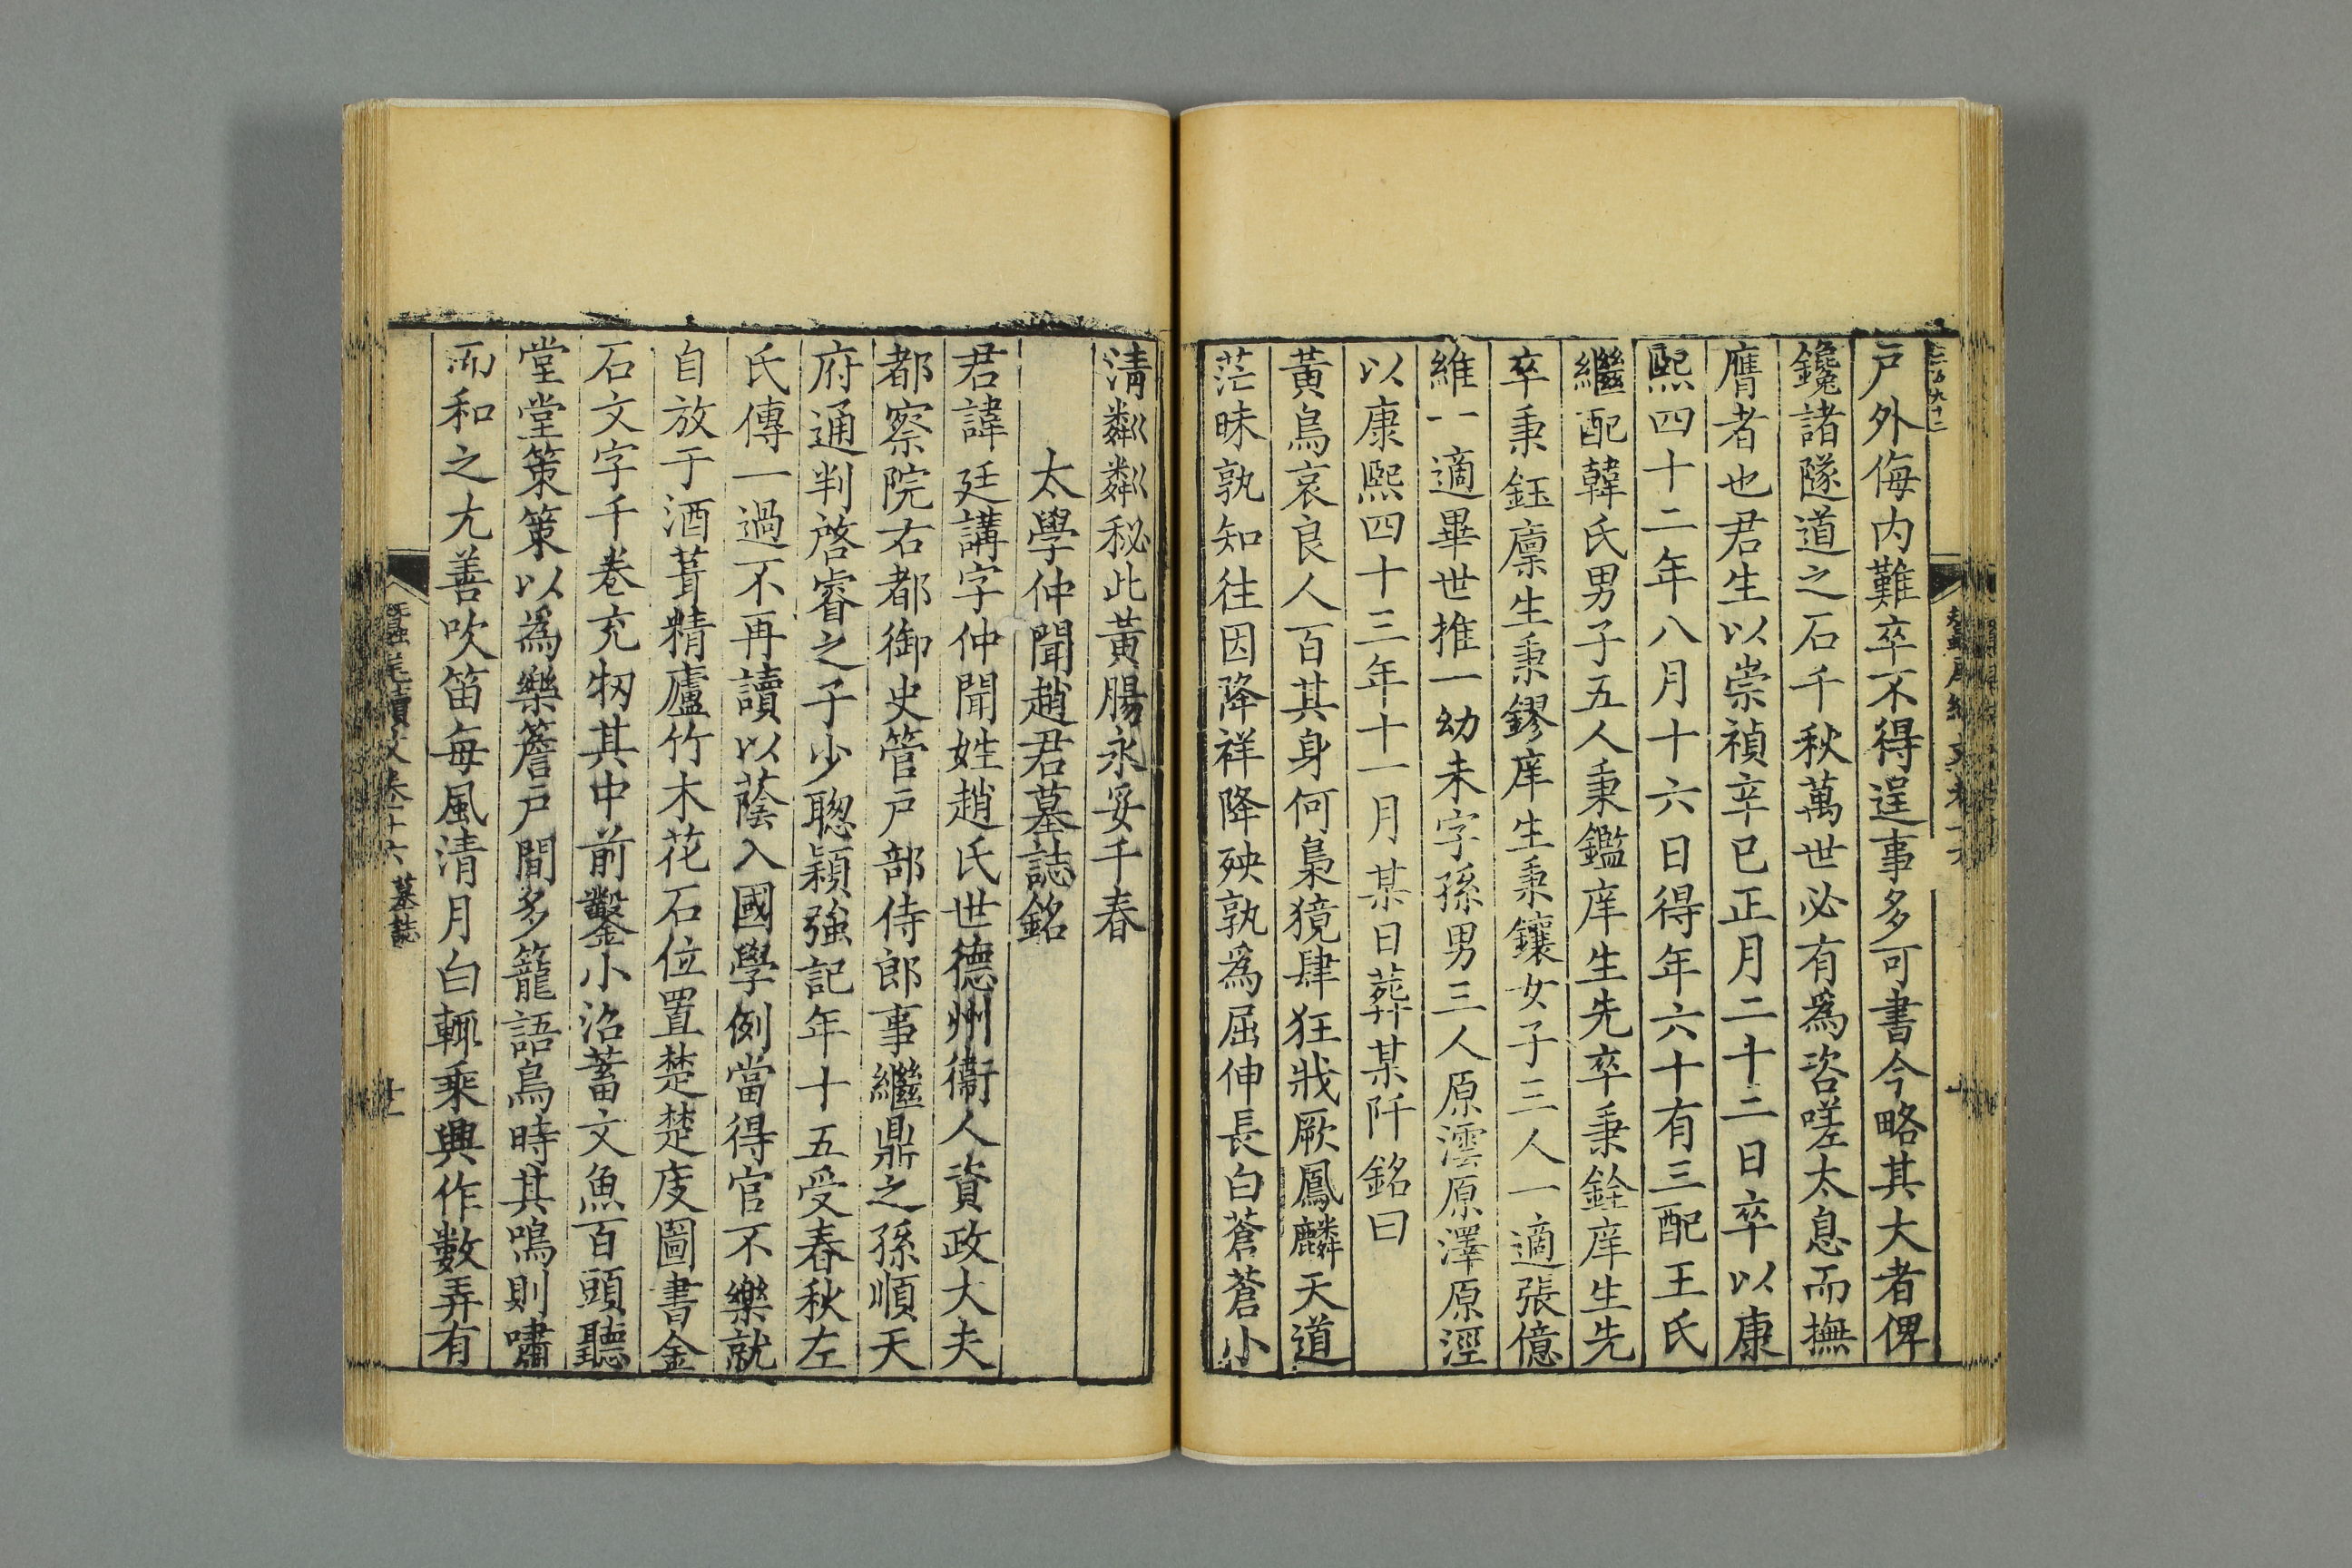 戸外侮内難卒不得逞事多可書今略其大者俾
鑱諸隧道之石千秋萬世必有爲咨嗟太息而撫
膺者也君生以崇禎辛巳正月二十二日卒以康
熙四十二年八月十六日得年六十有三配王氏
繼配韓氏男子五人秉鑑庠生先卒秉銓庠生先
卒秉鈺廪生秉鏐庠生秉鑲女子三人一適張億
維一適畢世推一幼未字孫男三人原澐原澤原涇
以康熙四十三年十一月某日葬某阡銘曰
黃鳥哀良人百其身何梟獍肆狂戕厥鳳麟天道
茫昧孰知往因降祥降殃孰爲屈伸長白蒼蒼小
清粼粼秘此黃腸永妥千春
太學仲聞趙君墓誌銘
君諱廷講字仲聞姓趙氏世德州衞人資政大夫
都察院右都御史管戸部侍郎事繼鼎之孫順天
府通判啓睿之子少聰穎強記年十五受春秋左
氏傳一過不再讀以蔭入國學例當得官不樂就
自放于酒葺精廬竹木花石位置楚楚庋圖書金
石文字千卷充牣其中前鑿小沼蓄文魚百頭聽
堂堂策策以爲樂簷戸間多籠語鳥時其鳴則嘯
而和之尤善吹笛每風清月白輒乘興作數弄有
蠶尾續文卷十六 墓誌 十二